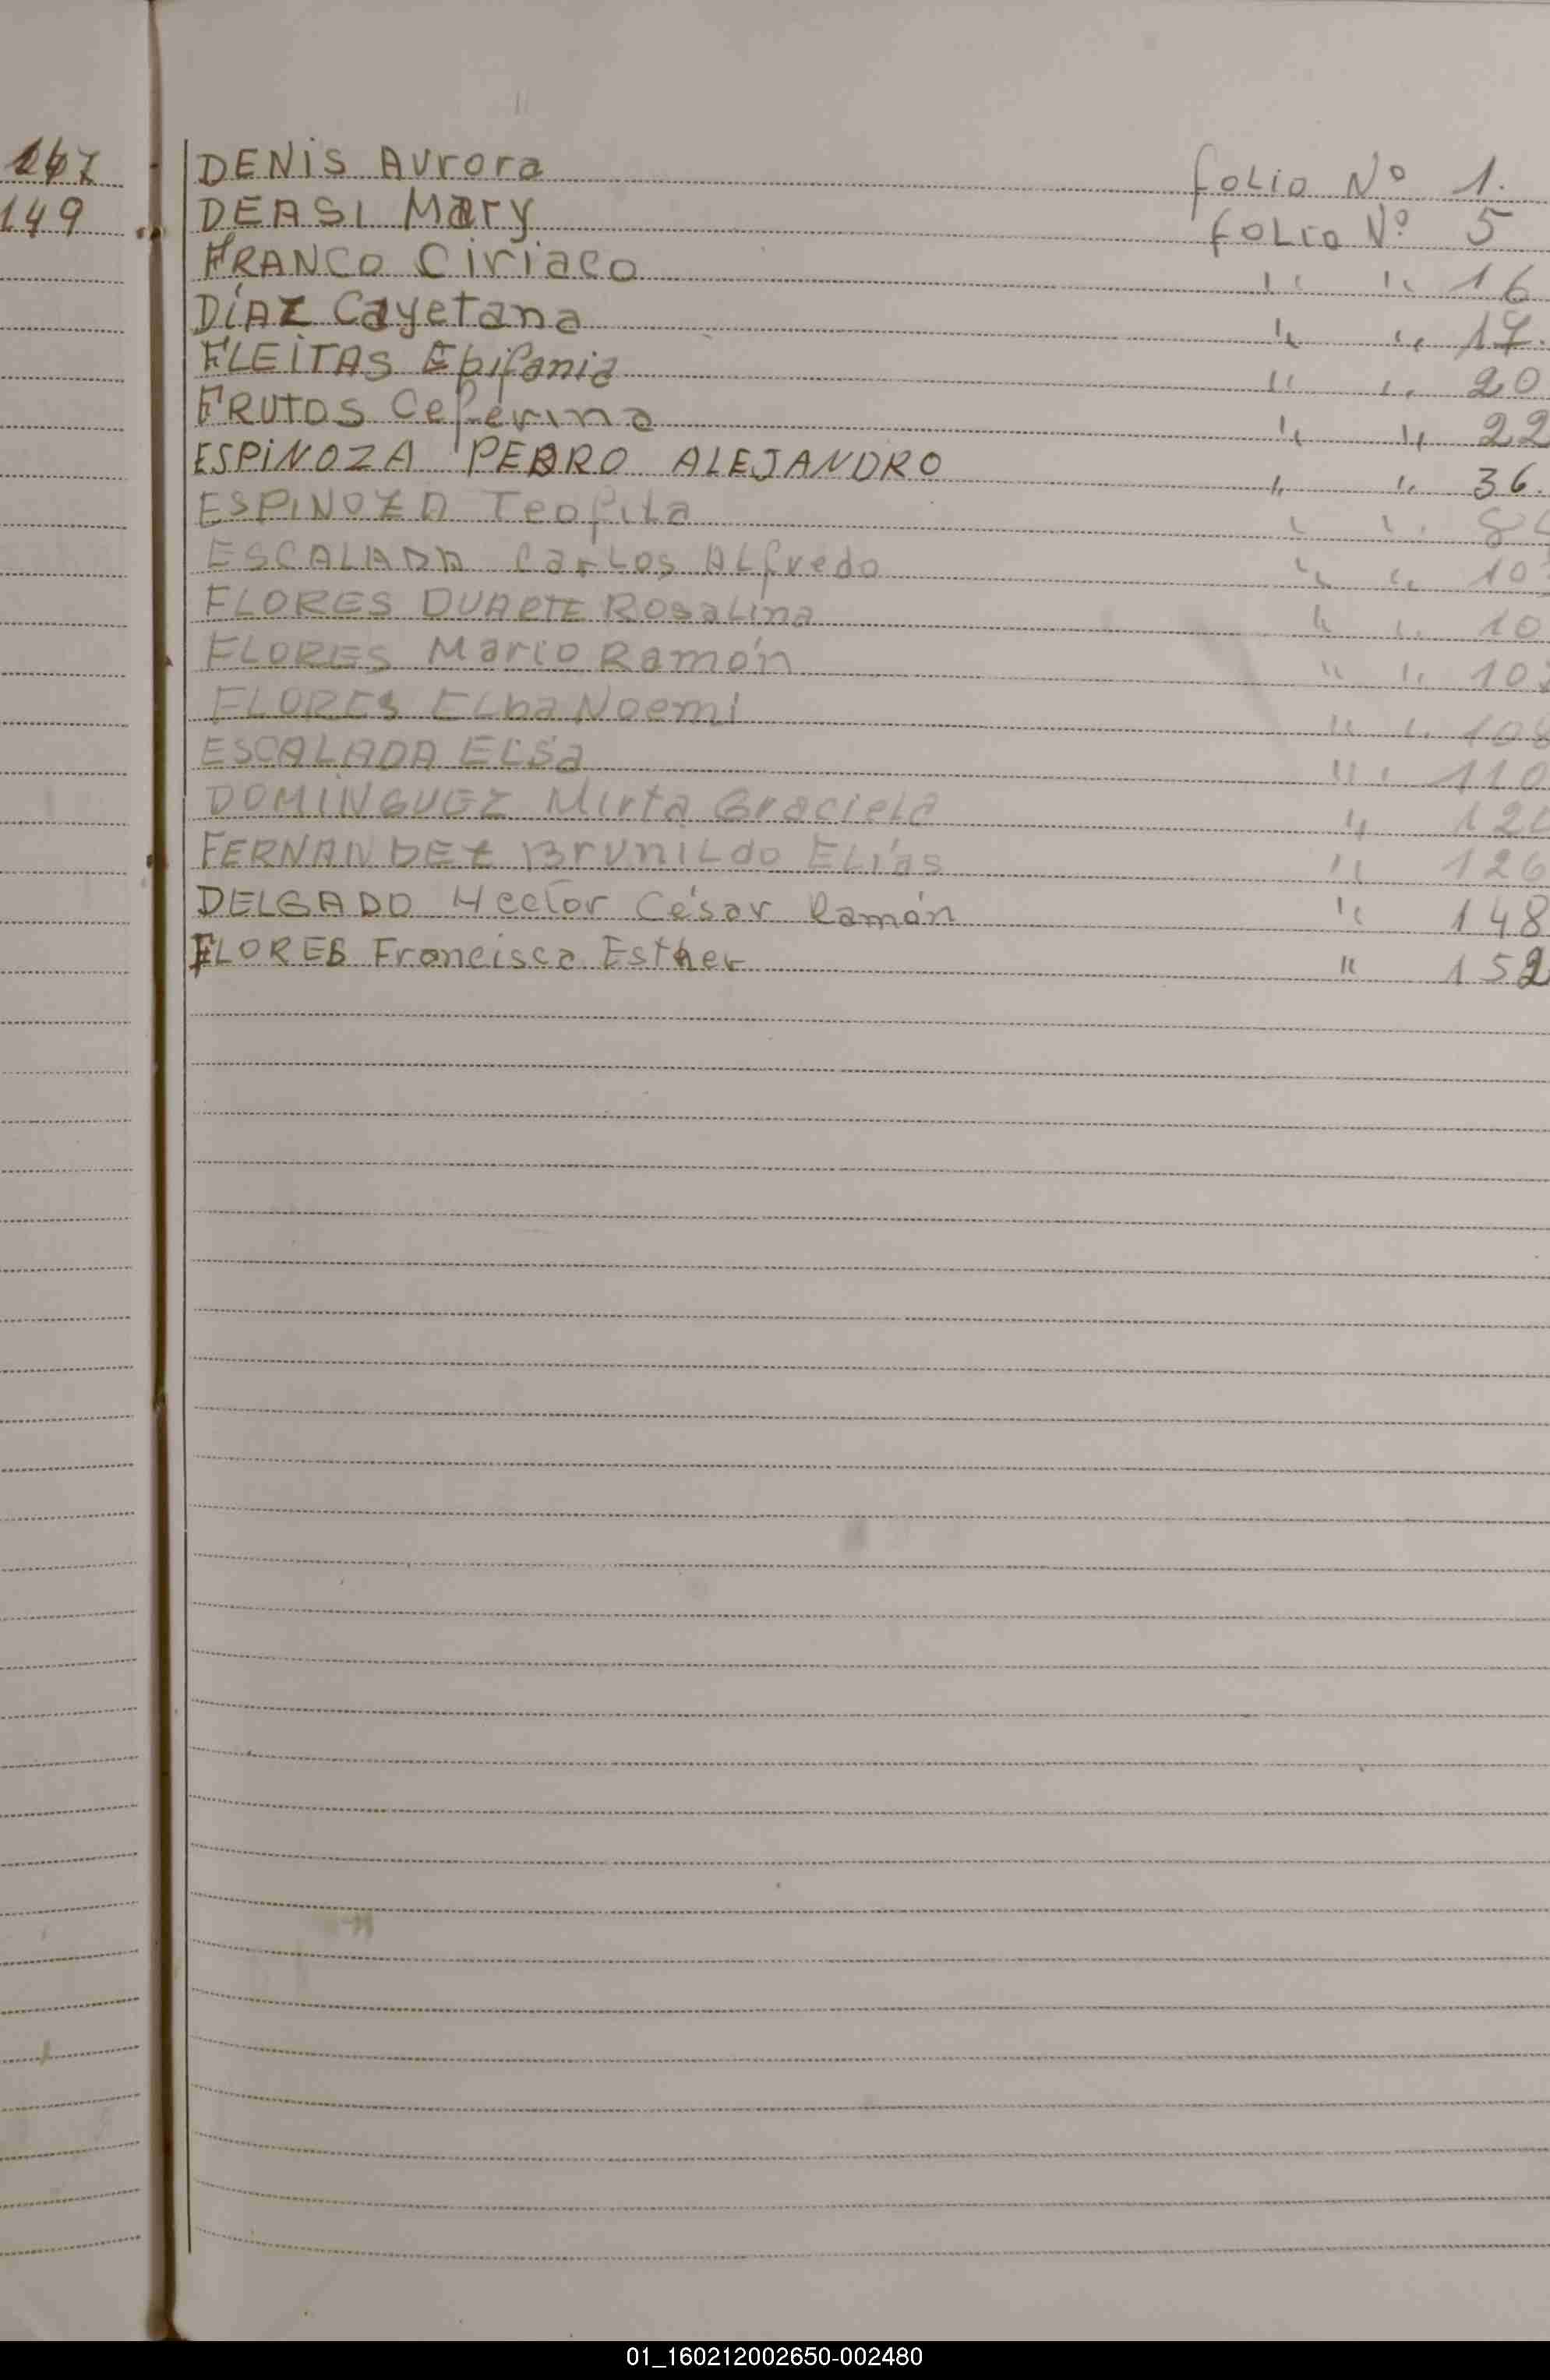 149
DENIS Aurora folio Nº 1.
DEASI Mary folio Nº 5
FRANCO Ciriaco " " 16
DíAZ Cayetana " " 17.
FLEITAS Epifania " " 20
FRUTOS Ceferina " " 22
ESPINOZA PEDRO ALEJANDRO " " 36.
ESPINOZA Teofila " "
ESCALADA Carlos ALfredo " " 10
FLORES DUARTE Rosalina " " 10
FLORES Mario Ramón " " 10
FLORES ELba Noemi " " 108
ESCALADA ELSa " " 110
DOMINGUEZ Mirta Graciela "
FERNANDEZ BruniLdo ELías " 126
DELGADO Hector César Ramón " 148
FLORES Francisca Esther " 152
01_160212002650-002480